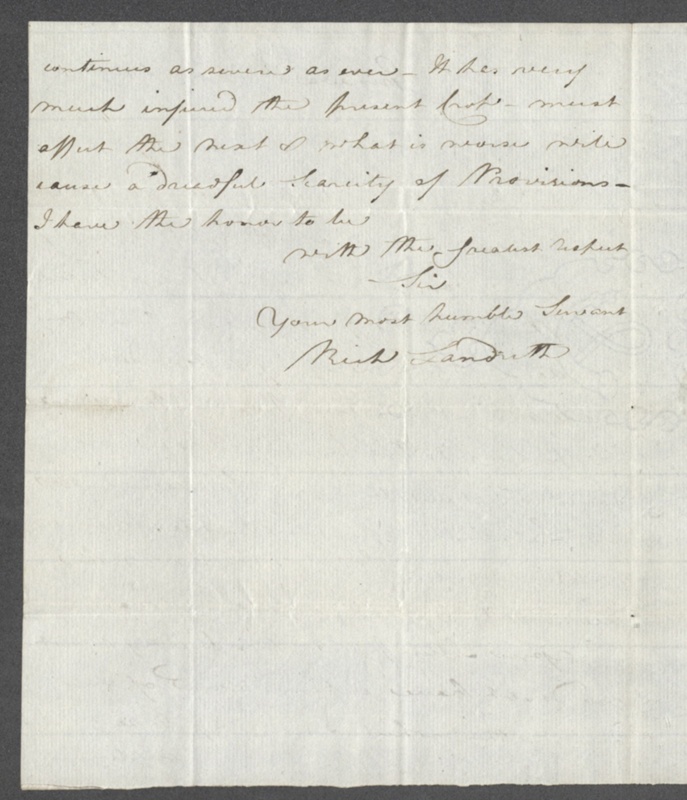 continues as severe as ever - It has very
much injured the present Crop - must
affect the next & what is worse will
cause a dreadful Scarcity of Provisions -
I have the honor to be
with the greatest respect
Sir
Your most humble Servant
Rich Landreth